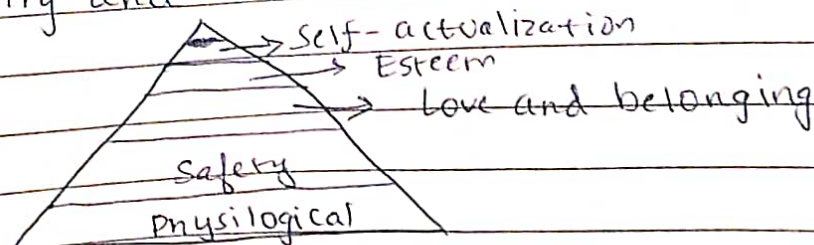 Self-actualization
Esteem
Love and belonging
Safety
Physilogical